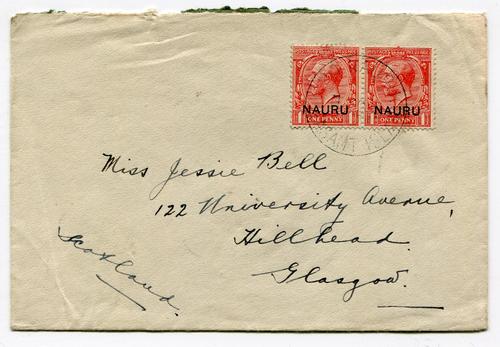 NAURU NAURU
ONE PENNY ONE PENNY
Miss Jessie Bell
122 University Avenue,
Hillhead
Glasgow.
Scotland.